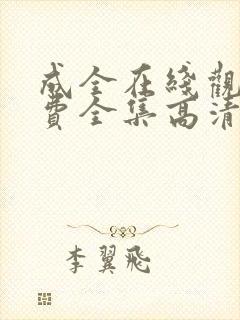 成全在綫觀
費全集高清
李翼飛